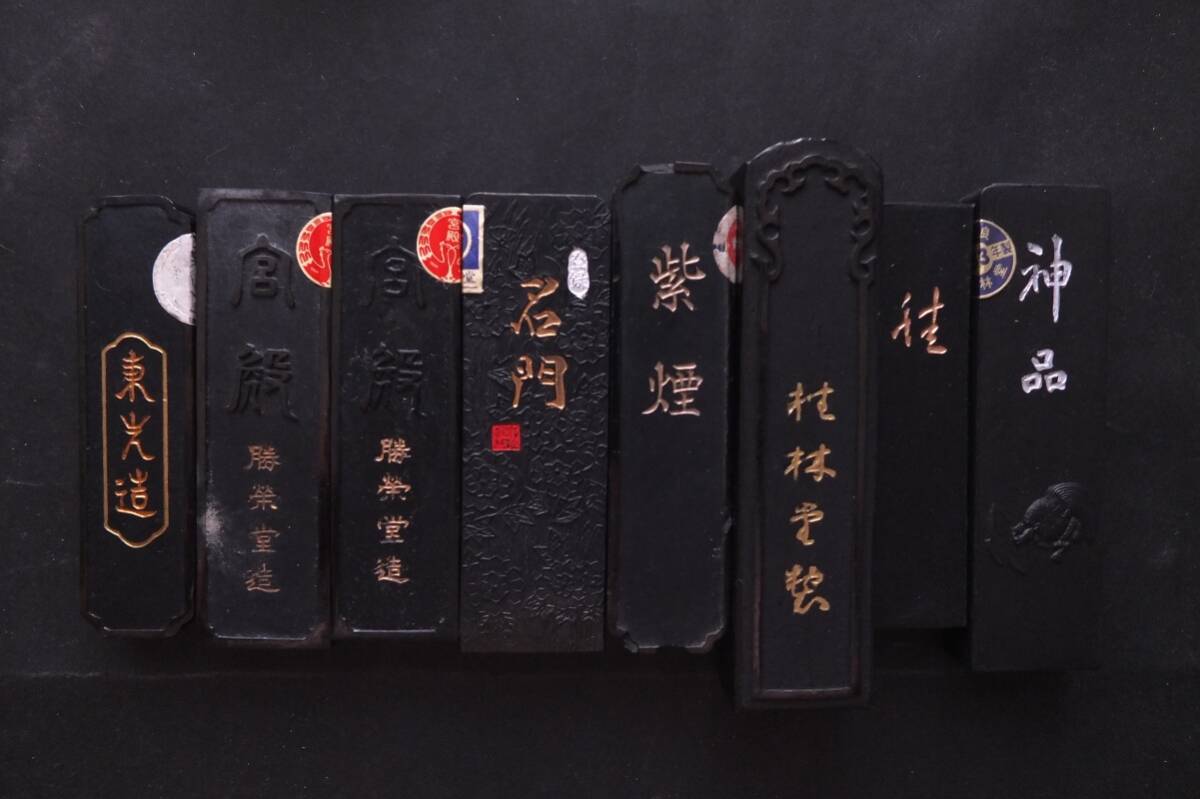 東光造
宮殿
勝榮堂造
宮殿
勝榮堂造
宮殿
石門
紫煙
桂林堂製
神品